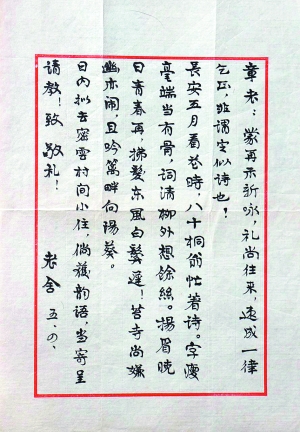 章老：蒙再示新詠，礼尚往来，速成一律
乞正，非謂定似诗也！
長安五月看花時，八十桐翁忙著诗。字瘦
毫端当有骨，詞清柳外想餘絲。揚眉晓
日青春再，拂鬓东風白髮遲！苔寺尚嫌
幽亦闹，且吟篱畔向陽葵。
日内拟去密雲村间小住，倘獲韵语，当寄呈
請教！致 敬礼！
老舍 五、四、